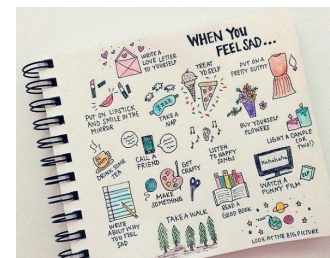 WHEN YOU
FEEL SAD...
WRITE A
LOVE LETTER
TO YOURSELF
TREAT
YO SELF
PUT ON A
PRETTY OUTFIT
PUT ON LIPSTICK
AND SMILE IN THE
MIRROR
TAKE A
NAP
BUY YOURSELF
FLOWERS
LIGHT A CANDLE
(OR
TWO!)
DRINK SOME
TEA
CALL A
FRIEND
LISTEN
TO HAPPY
SONGS
GET
CRAFTY
MAKE
SOMETHING
Hahahaha
WATCH A
FUNNY FILM
WRITE
ABOUT WHY
YOU FEEL
SAD
TAKE A WALK
READ A
GOOD BOOK
LOOK AT THE BIG PICTURE